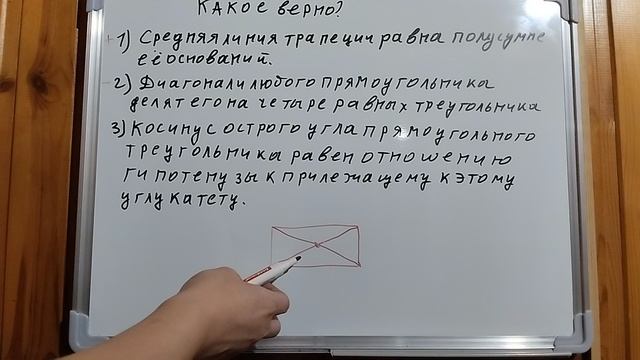 КАКОЕ верно?
+1) Средняя линия трапеции равна полусумме
её оснований.
-2) Диагонали любого прямоугольника
делят его на четыре равных треугольника
3) Косинус острого угла прямоугольного
треугольника равен отношению
гипотенузы к прилежащему к этому
углу катету.